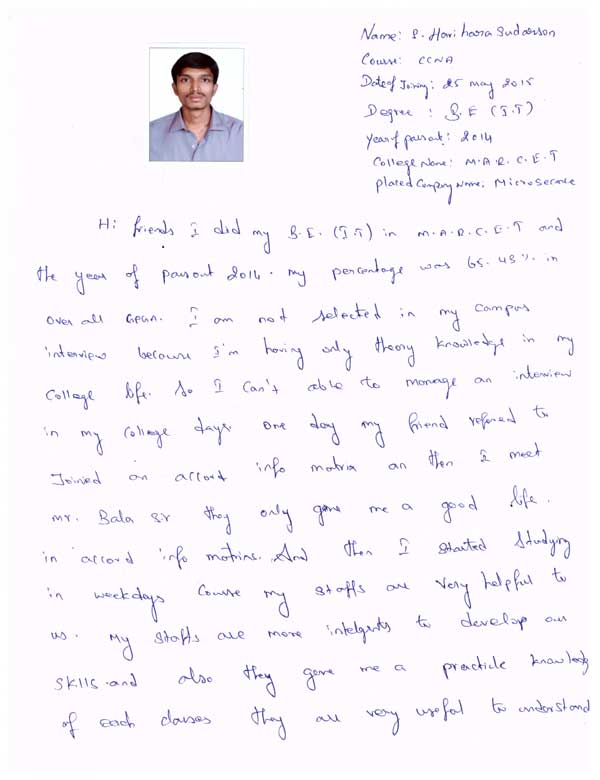 Name: S. Hari hara Sudarson
Course: CCNA
Date of Joining: 25 may 2015
Degree : B.E (I.T)
Year of passout: 2014
College Name: M.A.R.C.E.T
Placed Company Name: Microsecnce
Hi friends I did my B.E. (I.T) in M.A.R.C.E.T and
the year of passout 2014. my percentage was 65.43% in
over all GPA. I am not selected in my campus
interview because I'm having only theory knowledge in my
college life. So I can't able to manage an interview
in my college days. one day my friend refered to
Joined an accord info matrix an then I meet
mr. Bala sir they only gave me a good life.
in accord info matrix. And then I started studying
in weekdays course my staffs are very helpful to
us. My staffs are more to develop our
skills and also they gave me a practicle knowledg
of each classes they are very useful to understand